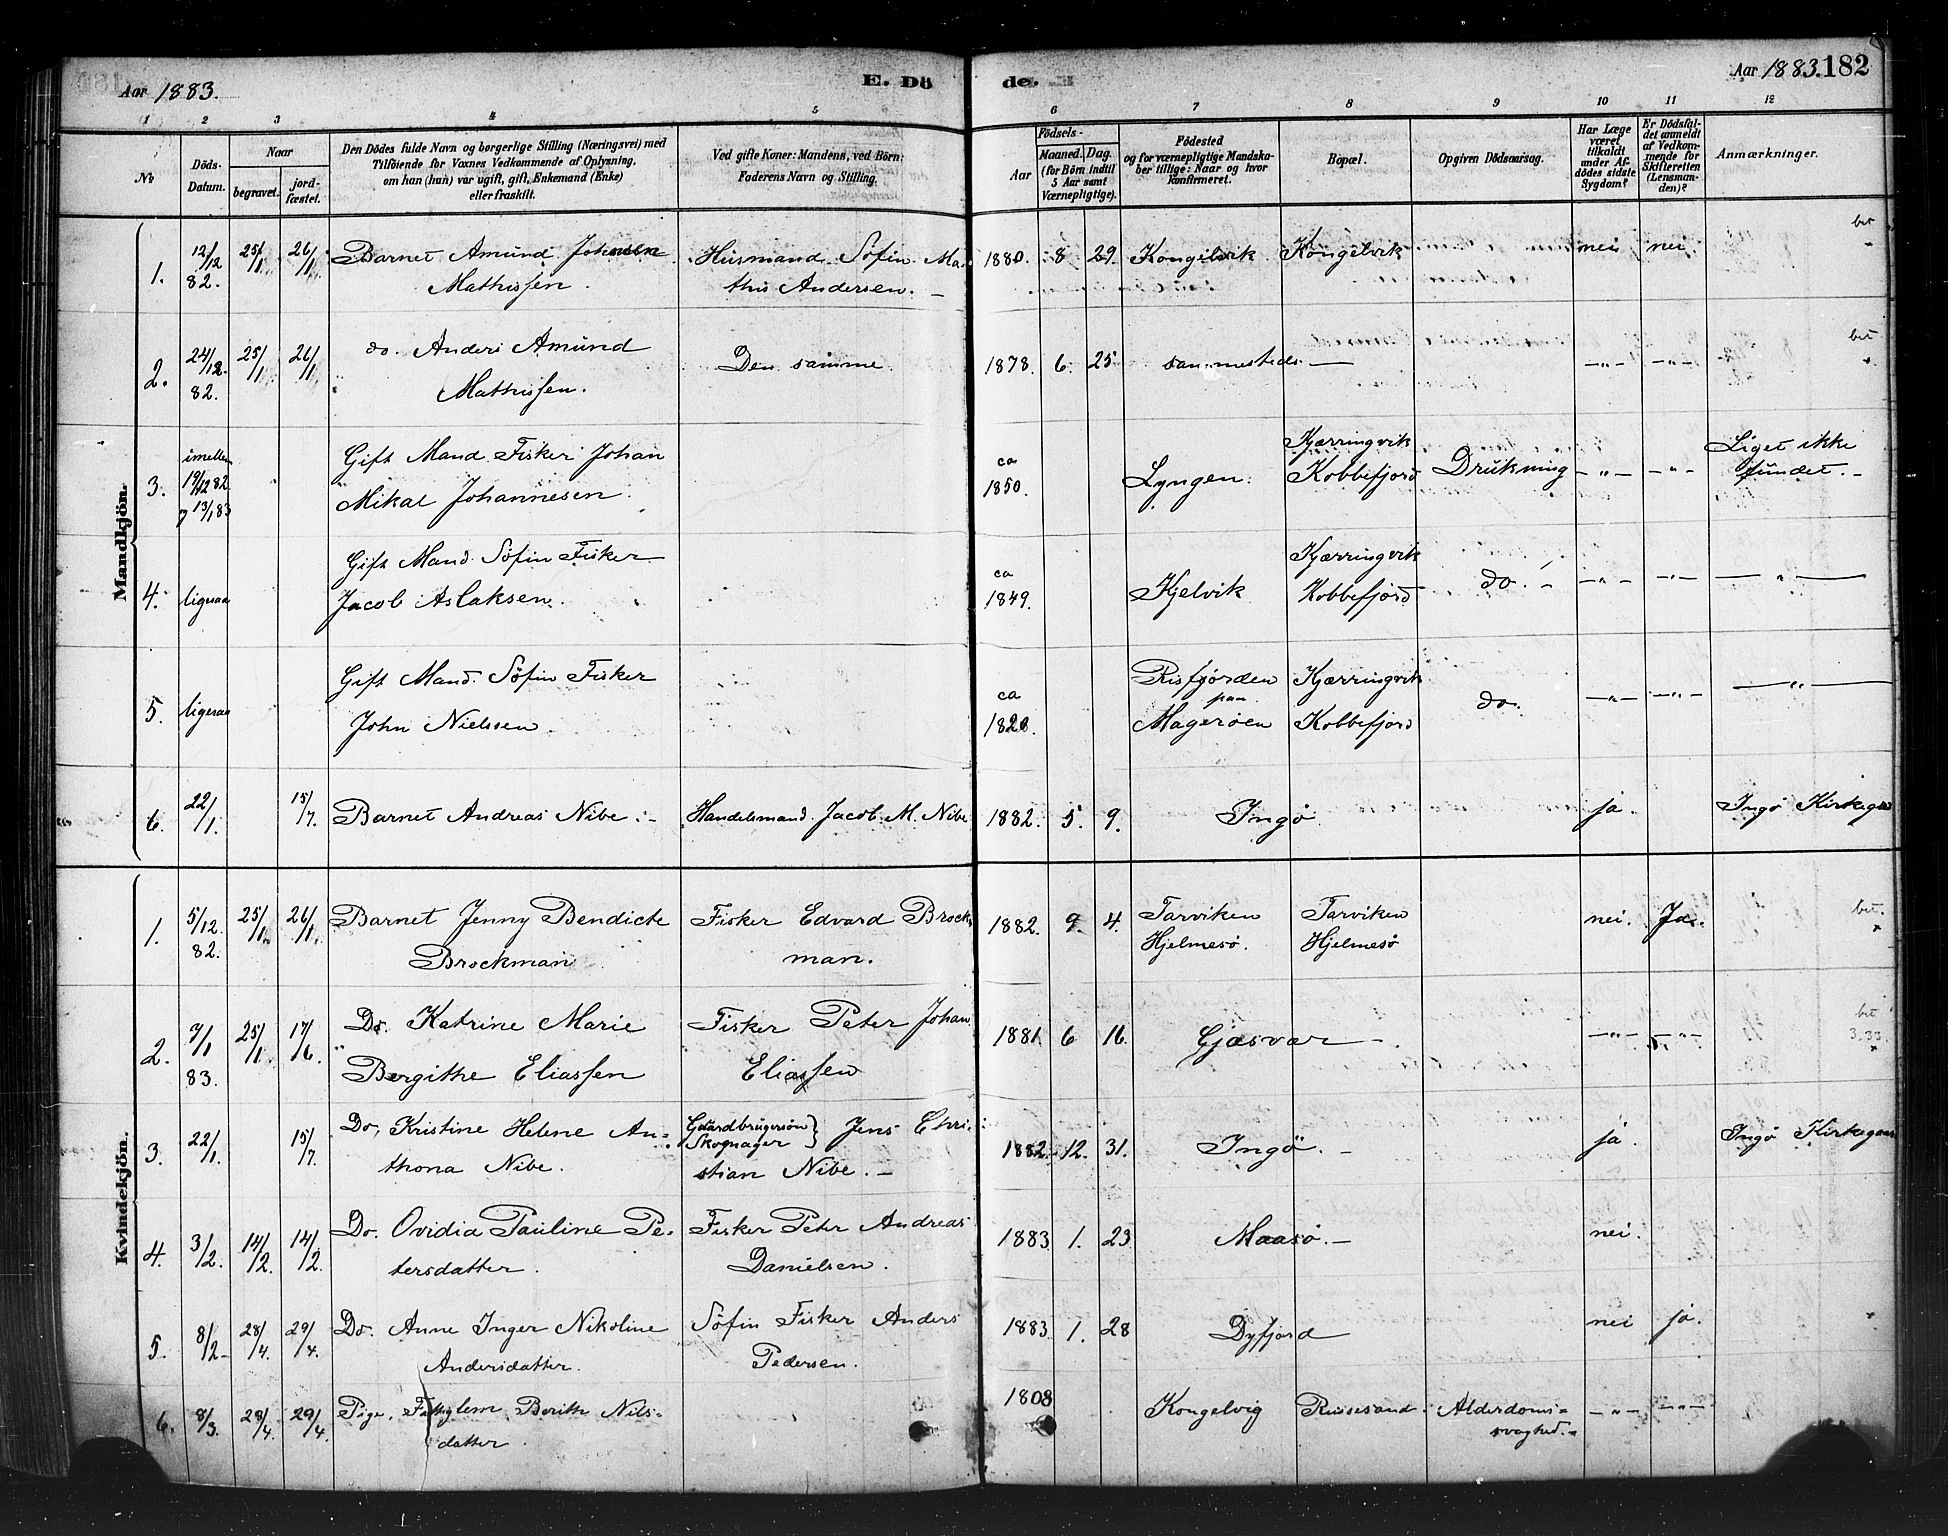 Aar 1883. E. Dö de. Aar 1883. 182
1 2 3 4 5 6 7 8 9 10 11 12
№
Döds-Datum.
Naar
begravet. jord-fæstet.
Den Dödes fulde Navn og borgerlige Stilling (Næringsvei) med
Tilföiende for Voxnes Vedkommende af Oplysning,
om han (hun) var ugift, gift, Enkemand (Enke)
eller fraskilt.
Ved gifte Koner: Mandens, ved Börn:
Faderens Navn og Stilling.
Födsels-
Aar Maaned. Dag.
(for Börn indtil
5 Aar samt
Værnepligtige).
Födested
og for værnepligtige Mandska-
ber tillige: Naar og hvor
konfirmeret.
Bopæl.
Opgiven Dödsaarsag.
Har Læge
været
tilkaldt
under Af-
dödes sidste
Sygdom?
Er Dödsfal-
det anmeldt
af Vedkom-
mende for
Skifteretten
(Lensman-
den)?
Anmærkninger.
Mandkjön.
1. 12/12 82. 25/1 26/1 Barnet Amund Johnsen Husmand Søfin Ma- 1880. 8 29. Kongelvik Kongelvik nei nei bet
Mathissen. this Andersen.
2. 24/12 82. 25/1 26/1 do. Anders Amund Den samme 1878 6 25 sammesteds — -"- -"- bet
Mathissen.
3. imellem 19/12 82 13/1 83 Gift Mand Fisker Johan ca 1850. Lyngen. Kjærringvik Drukning -"- -"- Liget ikke
Mikal Johannesen. Kobbefjord fundet.
4. ligesaa Gift Mand Søfin Fisker ca 1849. Kjelvik Kjærringvik do. -"- -"- —"—
Jacob Aslaksen. Kobbefjord
5. ligesaa Gift Mand. Søfin Fisker ca 1820 Risfjorden Kjærringvik do. -"- -"- —"—
John Nielssen. paa
Magerøen Kobbefjord
6. 22/1. 15/7. Barnet Andreas Nibe. Handelsmand Jacob M. Nibe 1882. 5. 9. Ingø ja. Ingø Kirkegaa
Kvindekjön.
1. 5/12 82. 25/1 26/1. Barnet Jenny Bendicte Fisker Edvard Brock- 1882. 9. 4. Tarviken Tarviken nei. Ja. bet.
Brockman man. Hjelmesø. Hjelmesø
2. 7/1 83 25/1 17/6. Do. Katrine Marie Fisker Peter Johan 1881. 6 16. Gjæsvær -"- -"- bet 3.33
Bergithe Eliassen Eliassen
3. 22/1. 15/7. Do, Kristine Helene An- Gaardbrugersøn Skopnager Jens Chri- 1882. 12. 31. Ingø. ja. Ingø Kirkegaar
thona Nibe. stian Nibe.
4. 3/2. 14/2. 14/2. Do. Ovidia Pauline Pe- Fisker Peter Andreas 1883 1. 23 Maasø. nei.
tersdatter. Danielsen.
5. 8/2 28/4. 29/4. Do. Anne Inger Nikoline Søfin Fisker Anders 1883. 1. 28 Dyfjord nei ja.
Andersdatter. Pedersen.
6. 8/3. 28/4. 29/4. Pige, Berith Nils- 1808 Kongelvig Russesand Alderdoms- -"- -"-
datter. svaghed.